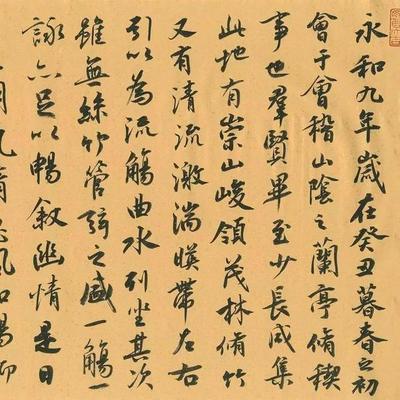 永和九年歲在癸丑暮春之初
會于會稽山陰之蘭亭脩稧
事也羣賢畢至少長咸集
此地有崇山峻領茂林脩竹
又有清流激湍暎帶左右
引以為流觴曲水列坐其次
雖無絲竹管弦之盛一觴一
詠亦足以暢叙幽情是日
朗氣清惠風和暢仰